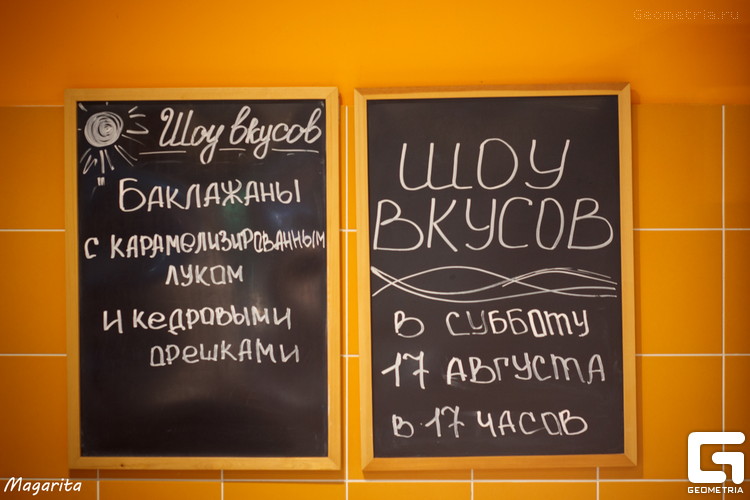 Geometria.ru
Шоу вкусов
"Баклажаны
с карамелизированным
луком
и кедровыми
орешками
ШОУ
ВКУСОВ
в субботу
17 августа
в 17 часов
Magarita
GEOMETRIA